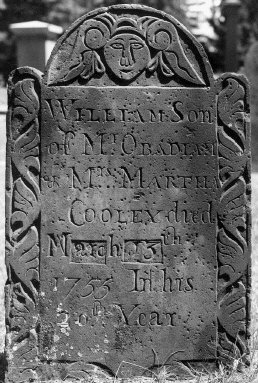 William Son
of Mr Obadiah
& Mrs Martha
Cooley died
March 23th
1755 In his
20th Year